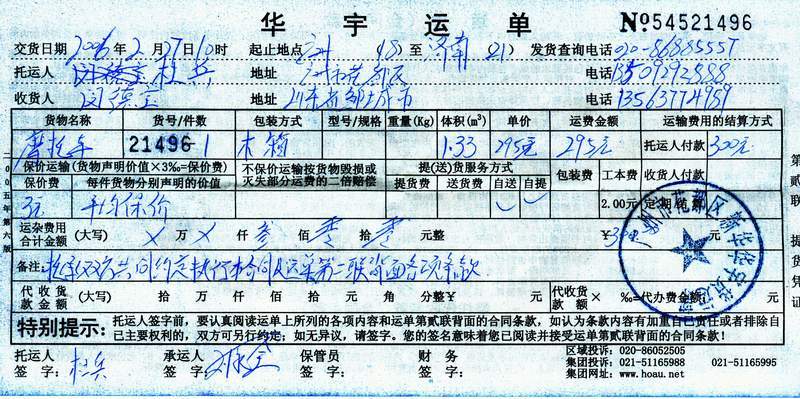 华宇运单 №54521496
交货日期 2006年2月27日10时 起止地点 广州(18)至济南(21) 发货查询电话 020-86885557
托运人 杜兵 地址 广州市花都区 电话
收货人 闵德宝 地址 山东省邹城市 电话 13563774959
货物名称 货号/件数 包装方式 型号/规格 重量(Kg) 体积(m³) 单价 运费金额 运输费用的结算方式
摩托车 21496-1 木箱 1.33 295元 295元 托运人付款 300元
保价运输(货物声明价值×3‰=保价费) 不保价运输按货物毁损或灭失部分运费的二倍赔偿 提(送)货服务方式 包装费 工本费 收货人付款
保价费 每件货物分别声明的价值 提货费 送货费 自送 自提
3元 平均保价 2.00元 定期结算
运杂费用合计金额 (大写) 万 仟 叁佰 零拾 零元整 ¥300
备注: 托承双方共同约定执行本合同及运单第二联背面各项条款
代收货款金额 (大写) 拾 万 仟 佰 拾 元 角 分整¥ 元 代收货款金额× ‰=代办费金额
特别提示: 托运人签字前,要认真阅读运单上所列的各项内容和运单第贰联背面的合同条款,如认为条款内容有加重自己责任或者排除自
己主要权利的,双方可另行约定;如无异议,请签字。您的签名意味着您已阅读并接受运单第贰联背面的合同条款!
托运人签字: 杜兵 承运人签字: 保管员签字: 财务签字:
区域投诉: 020-86052505
集团投诉: 021-51165988 021-51165995
集团网址: www.hoau.net